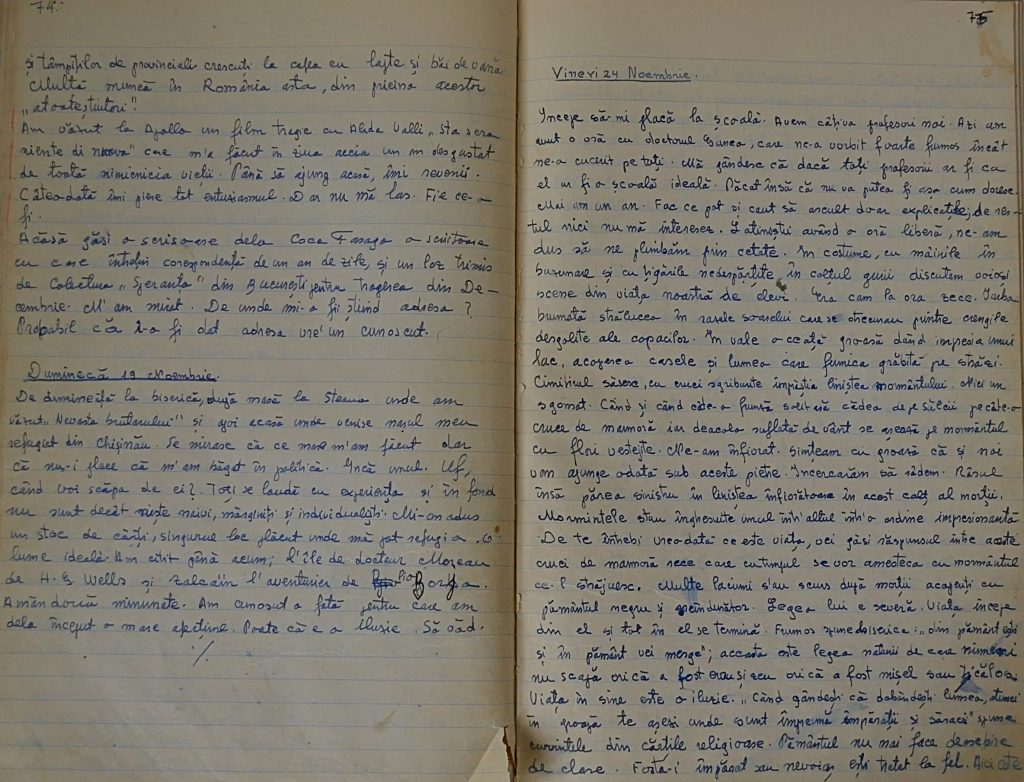 74.
și tâmpiților de provinciali crescuți la cafea cu lapte și băi de vană.
Multă muncă în România asta, din pricina acestor
„atoateștiutori"!
Am văzut la Apollo un film tragic cu Alida Valli „Sta sera
niente di nuova" care m'a făcut în ziua aceia un om desgustat
de toată nimicnicia vieții. Până să ajung acasă, îmi revenii.
Câteodată îmi piere tot entusiasmul. Dar nu mă las. Fie ce-o
fi.
Acasă găsi o scrisoare dela Coca Farago o scriitoare
cu care întrețin corespondență de un an de zile, și un loz trimis
de Colectura „Speranta" din București pentru tragerea din De-
cembrie. M'am mirat. De unde mi-o fi știind adresa?
Probabil că i-o fi dat adresa vre'un cunoscut.
Duminecă 19 Noembrie.
De dimineață la biserică, după masă la Steaua unde am
văzut „Nevasta brutarului" și apoi acasă unde venise nașul meu
refugiat din Chișinău. Se mirase că ce mare m'am făcut dar
că nu-i place că m'am băgat în politică. Încă unul. Uf,
când voi scăpa de ei? Toți se laudă cu experiența și în fond
nu sunt decât niște naivi, mărginiți și individualiști. Mi-am adus
un stoc de cărți, singurul loc plăcut unde mă pot refugia. O
lume ideală. Am citit până acum; l'île de Docteur Moreau
de H. G. Wells și Zalcaïn l'aventurier de Pio Baroja.
Amândouă minunate. Am cunoscut o fată pentru care am
dela început o mare afecțiune. Poate că e o iluzie. Să văd.
./.
75
Vineri 24 Noembrie.
Începe să-mi placă la școală. Avem câțiva profesori noi. Azi am
avut o oră cu doctorul Bunea, care ne-a vorbit foarte frumos încât
ne-a cucerit pe toți. Mă gândesc că dacă toți profesorii ar fi ca
el ar fi o școală ideală. Păcat însă că nu va putea fi așa cum doresc.
Mai am un an. Fac ce pot și caut să ascult doar explicațiile, de res-
tul nici nu mă interesez. Latinește având o oră liberă, ne-am
dus să ne plimbăm prin cetate. În costume, cu mâinile în
buzunare și cu țigările nedespărțite în colțul gurii discutam voioși
scene din viața noastră de elevi. Era cam la ora zece. Iarba
brumată strălucea în razele soarelui care se strecurau printre crengile
desgolite ale copacilor. În vale o ceață groasă dând impresia unui
lac, acoperea casele și lumea care furnica grăbită pe străzi.
Cimitirul săsesc, cu cruci sgribulite împrăștia liniștea mormântului. Nici un
sgomot. Când și când câte-o frunză solitară cădea depe sălcii pe câte-o
cruce de marmoră iar deacolo suflată de vânt se așează pe mormântul
cu flori veștejite. Ne-am înfiorat. Simțeam cu groază că și noi
vom ajunge odată sub aceste pietre. Încercarăm să râdem. Râsul
însă părea sinistru în liniștea înfiorătoare în acest colț al morții.
Mormintele stau înghesuite unul într'altul într'o ordine impresionantă.
De te întrebi vreodată ce este viața, vei găsi răspunsul între aceste
cruci de marmoră rece care cu timpul se vor amesteca cu mormântul
ce-l străjuesc. Multe lacrimi s'au scurs după morții acoperiți cu
pământul negru și neîndurător. Legea lui e severă. Viața începe
din el și tot în el se termină. Frumos spune biserica: „din pământ ești
și în pământ vei merge"; aceasta este legea naturii de care nimeni
nu scapă orică a fost erou sau orică a fost mișel sau ticălos.
Viața în sine este o iluzie. „Când gândești că dobândești lumea, atunci
în groapă te așezi unde sunt împreună împărații și săracii" spune
cuvintele din cărțile religioase. Pământul nu mai face deosebire
de clase. Fosta-i împărat sau nevoiaș ești tratat la fel. Aici este